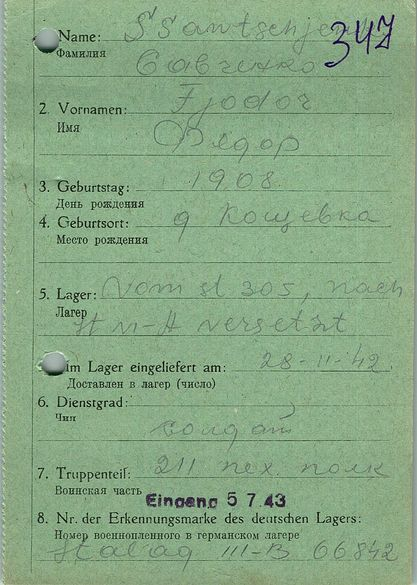 Name: SSawtschjenko
347
Фамилия
Савченко
2. Vornamen: Fjodor
Имя
Федор
3. Geburtstag: 1908
День рождения
4. Geburtsort: д Кощевка
Место рождения
5. Lager: Vom st 305, nach
Лагер
versetzt
im Lager eingeliefert am: 28-11-42
Доставлен в лагер (число)
6. Dienstgrad:
Чин
солдат
7. Truppenteil: 211 пех. полк
Воинская часть
Eingang 5 7.43
8. Nr. der Erkennungsmarke des deutschen Lagers:
Номер военнопленного в германском лагере
Stalag III-B 66842